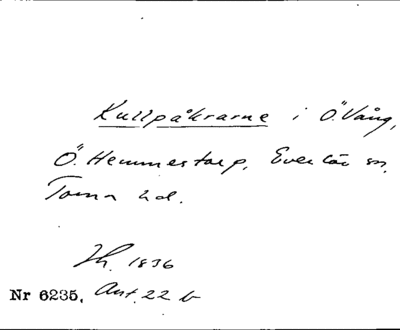 Kullpåkrarne i Ö. Vång,
Ö. Hemmestorp, Everlöv sn,
Torna hd.
1836
Nr 6235, Akt 22 b